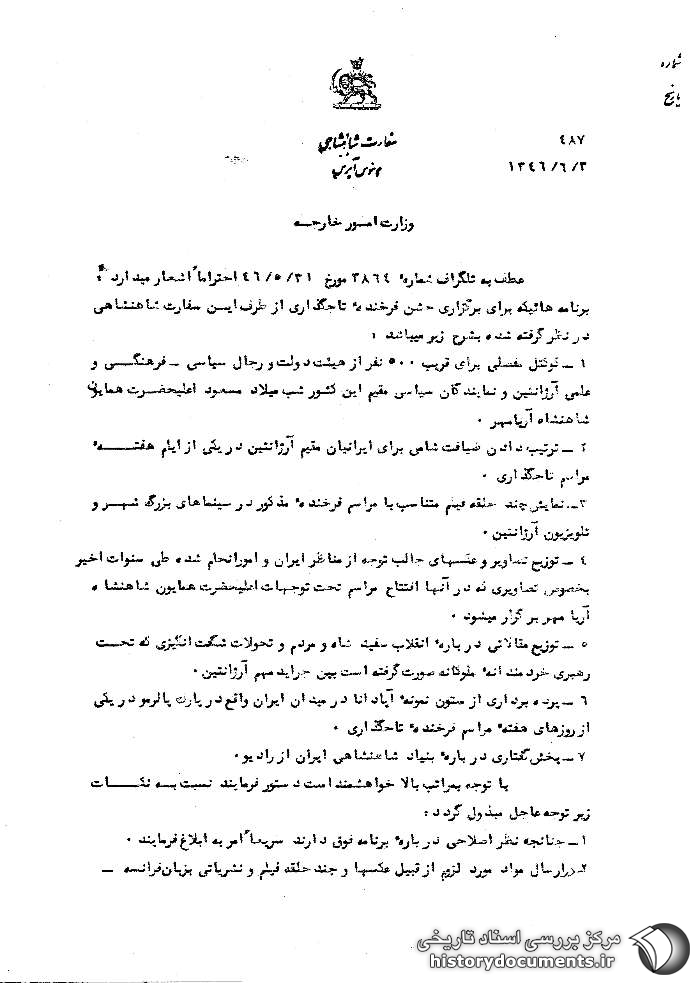 شماره
تاریخ
سفارت شاهنشاهی
بوئنوس آیرس
٤٨٧
١٣٤٦/٦/٣
وزارت امور خارجه
عطف به تلگراف شماره ٣٨٦٤ مورخ ٤٦/٥/٣١ احتراماً اشعار میدارد :
برنامه هائیکه برای برگزاری جشن فرخنده تاجگذاری از طرف ایسن سفارت شاهنشاهی
در نظر گرفته شده بشرح زیر میباشد :
١ ــ کوکتل مفصلی برای قریب ٥٠٠ نفر از هیئت دولت و رجال سیاسی ــ فرهنگی و
علمی آرژانتین و نمایندگان سیاسی مقیم این کشور شب میلاد مسعود اعلیحضرت همایون
شاهنشاه آریامهر ٠
٢ ــ ترتیب دادن ضیافت شامی برای ایرانیان مقیم آرژانتین در یکی از ایام هفته
مراسم تاجگذاری ٠
٣ــ نمایش چند حلقه فیلم متناسب با مراسم فرخنده مذکور در سینماهای بزرگ شهر و
تلویزیون آرژانتین ٠
٤ ــ توزیع تصاویر و عکسهای جالب توجه از مناظر ایران و امور انجام شده طی سنوات اخیر
بخصوص تصاویری که در آنها افتتاح مراسم تحت توجهات اعلیحضرت همایون شاهنشاه
آریا مهر برگزار میشود ٠
٥ ــ توزیع مقالاتی در باره انقلاب سفید شاه و مردم و تحولات شگفت انگیزی که تحت
رهبری خردمندانه ملوکانه صورت گرفته است بین جراید مهم آرژانتین ٠
٦ ــ پرده برداری از ستون نمونه آپادانا در میدان ایران واقع در پارک پالرمو در یکی
از روزهای هفته مراسم فرخنده تاجگذاری ٠
٧ ــ پخش گفتاری در باره بنیاد شاهنشاهی ایران از رادیو ٠
با توجه بمراتب بالا خواهشمند است دستور فرمایند نسبت به نکات
زیر توجه عاجل مبذول گردد :
١ ــ چنانچه نظر اصلاحی در باره برنامه فوق دارند سریعاً امر به ابلاغ فرمایند ٠
٢ــ در ارسال مواد مورد لزوم از قبیل عکسها و چند حلقه فیلم و نشریاتی بزبان فرانسه ــ
مرکز بررسی اسناد تاریخی
historydocuments.ir